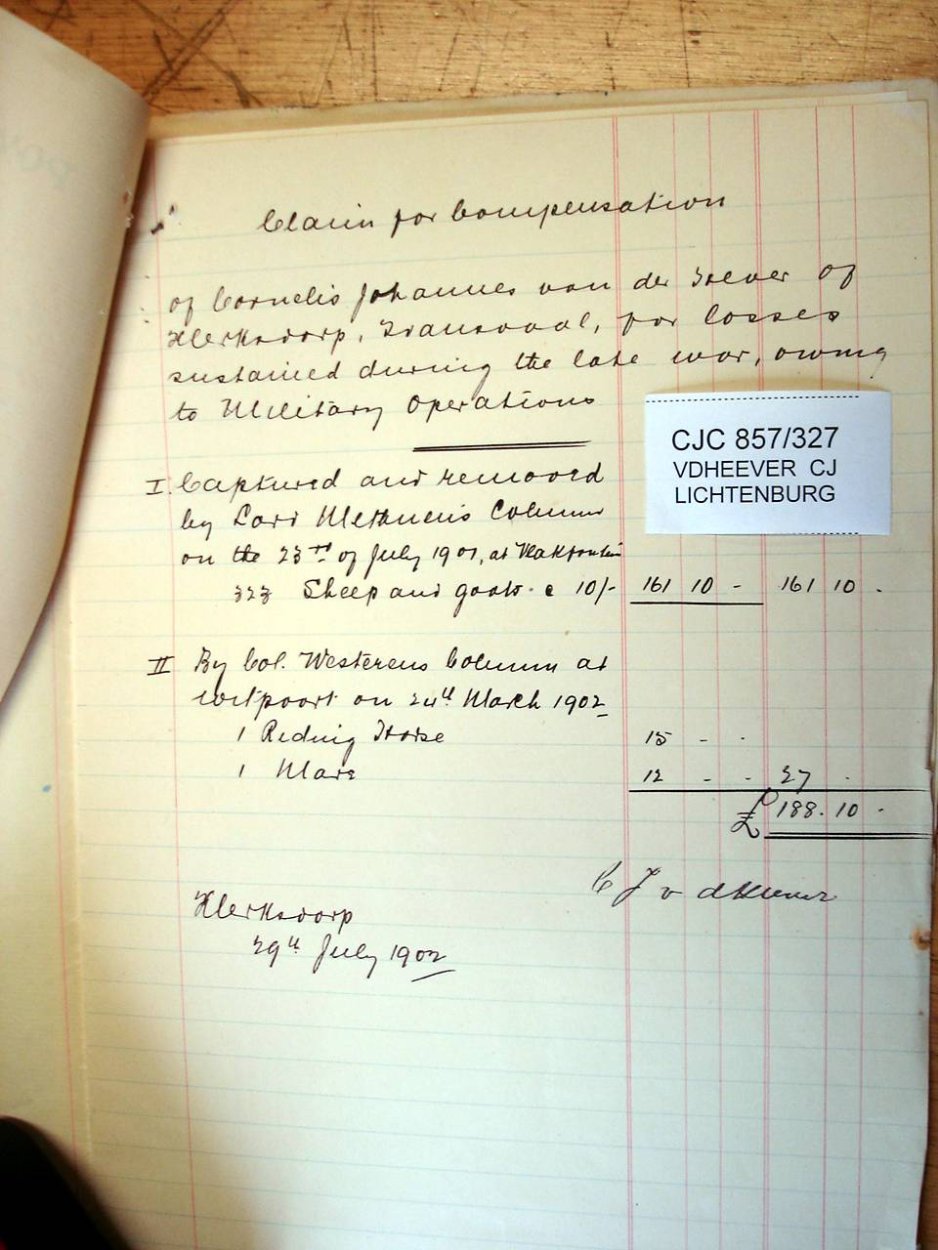 Claim for Compensation
of Cornelis Johannes van der Heever of
Klerksdorp, Transvaal, for losses
sustained during the late war, owing
to Military Operations
CJC 857/327
VDHEEVER CJ
LICHTENBURG
I. Captured and removed
by Lord Methuen's Column
on the 23rd of July 1901, at Vlakfontein
323 Sheep and goats @ 10/- 161 10 - 161 10 -
II By Col. Westerens Column at
Witpoort on 24th March 1902
1 Riding Horse 15 - -
1 Mare 12 - - 27 -
£ 188. 10 -
C J v d Heever
Klerksdorp
29th July 1902